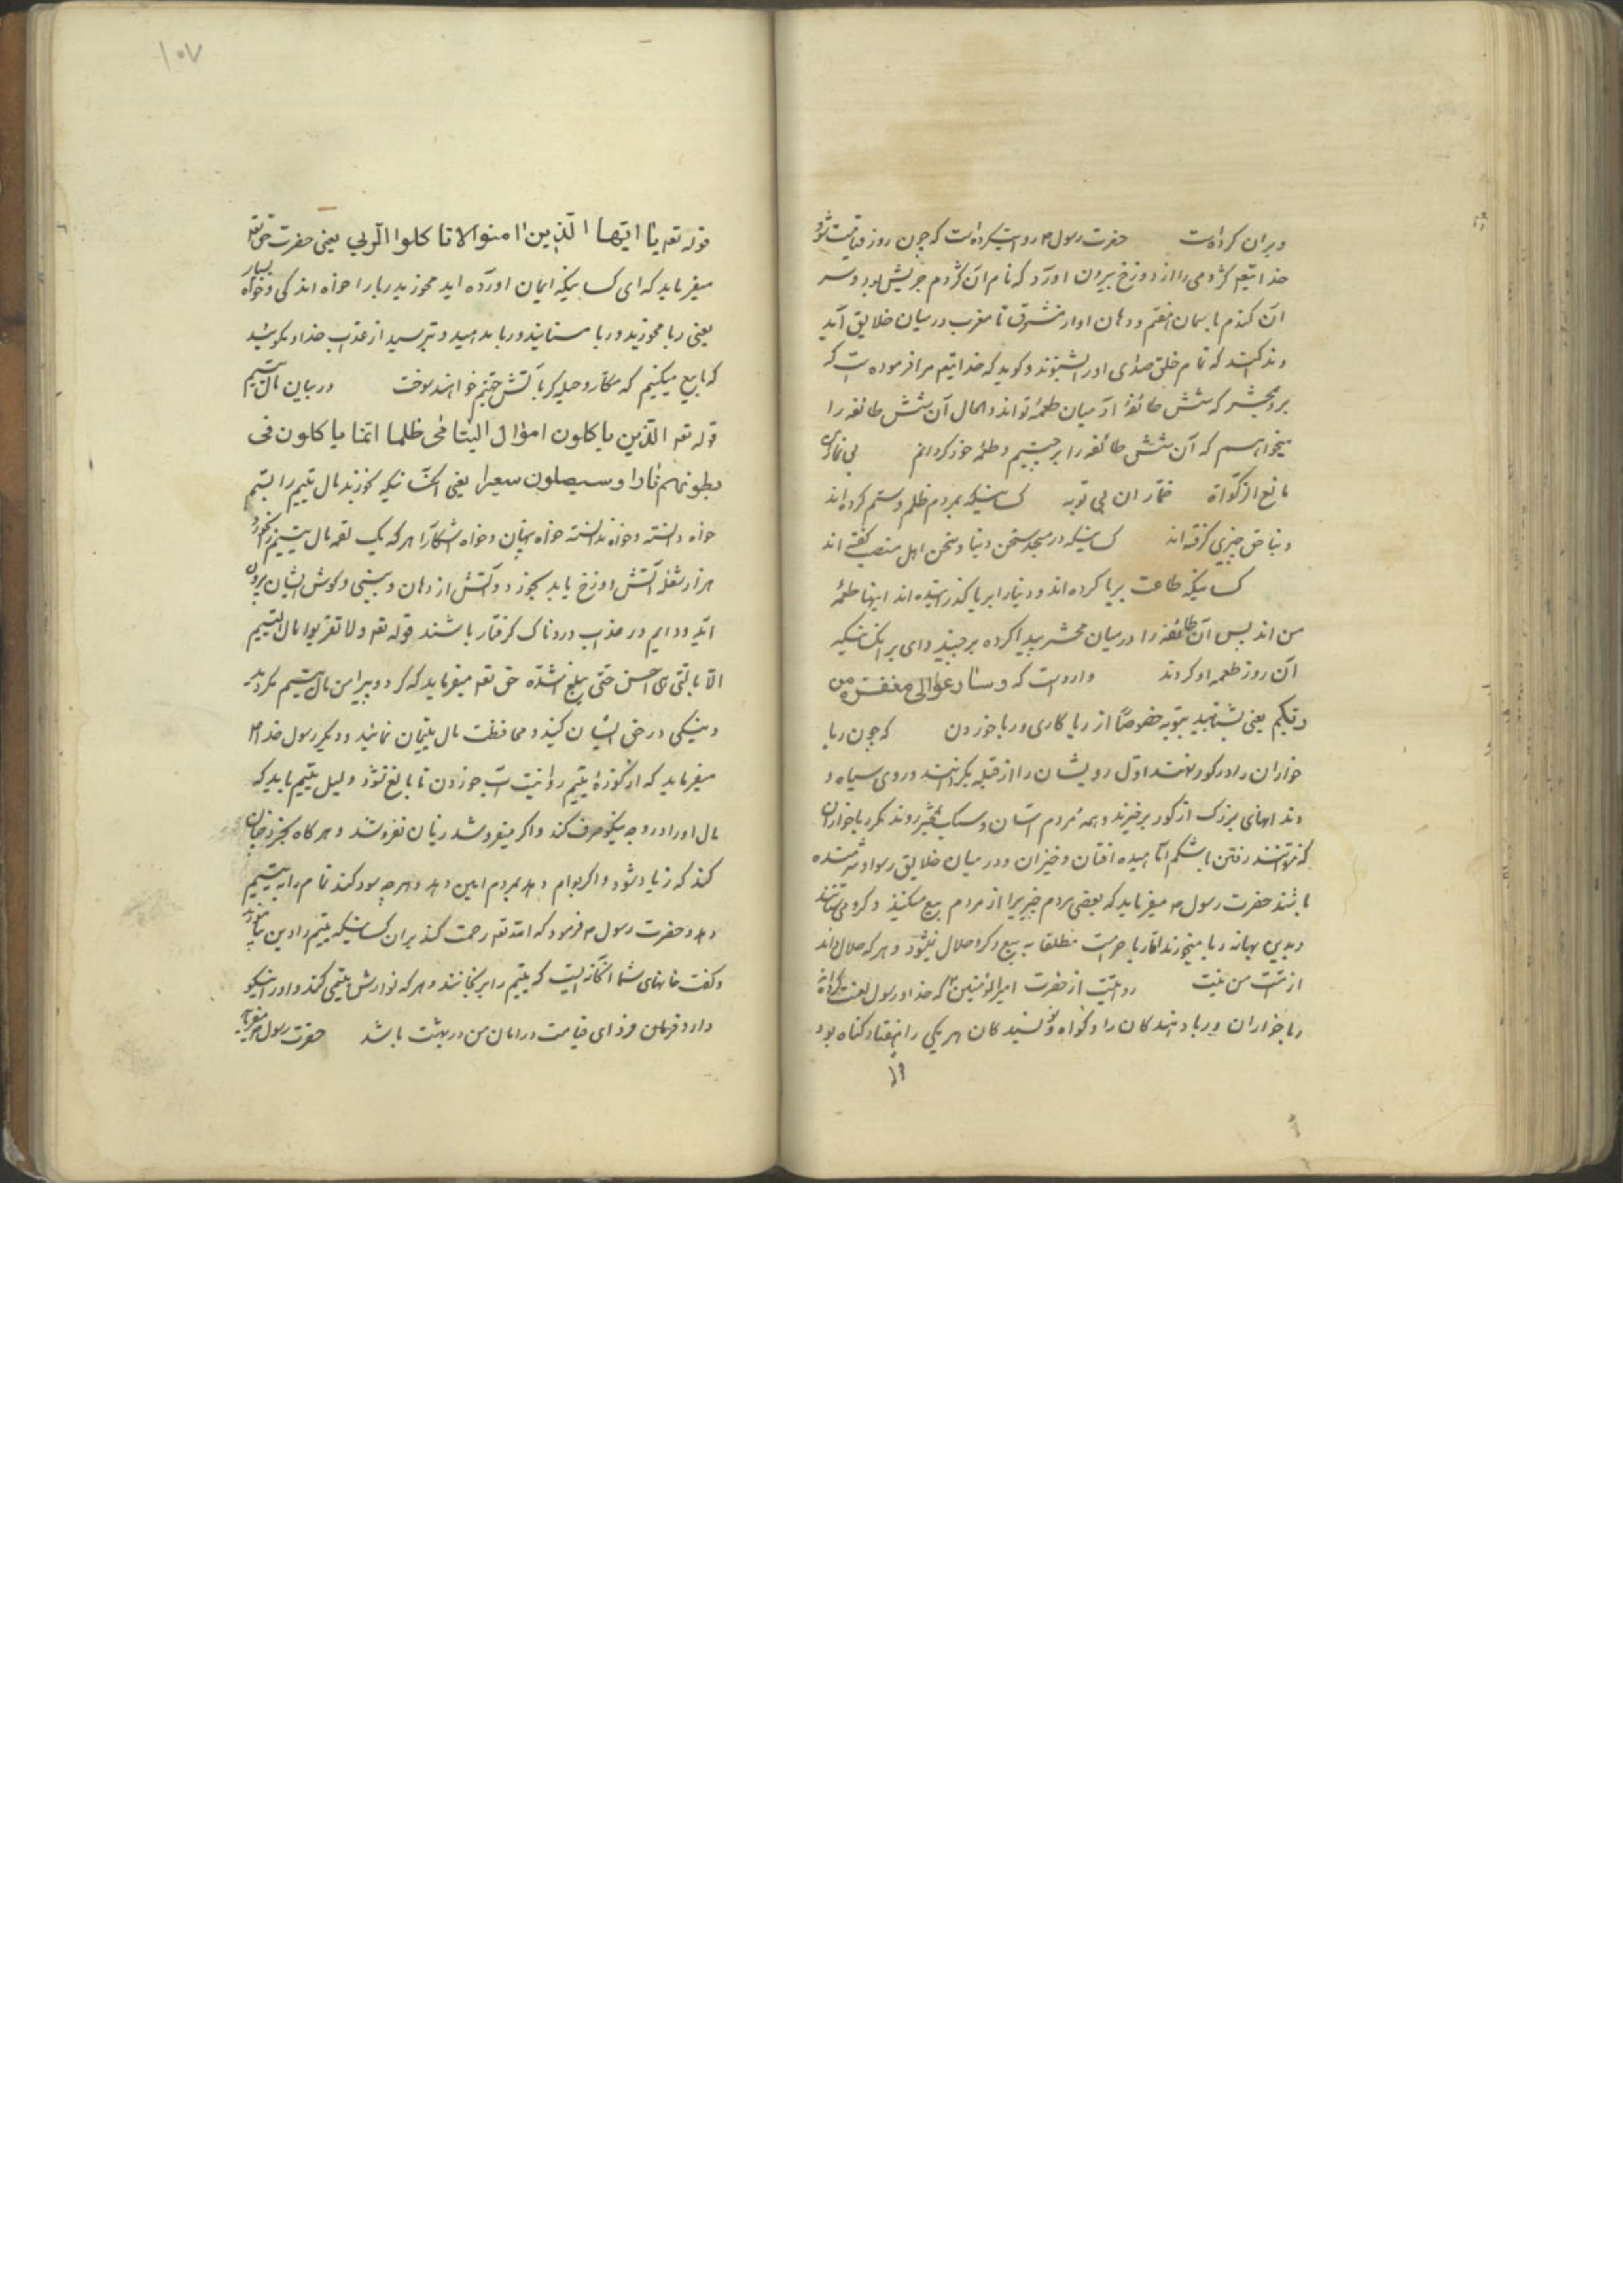 ویران کرده است حضرت رسول م روایت کرده است که چون روز قیامت شود
خدایتعه کژدمی را از دوزخ بیرون اورد که نام آن کژدم جریش بود و سر
آن کژدم باسمان هفتم و دهان او از مشرق تا مغرب در میان خلایق آید
و ندا کند که تمام خلق صدای او را بشنوند و کوید که خدایتعه مرا فرموده است که
برو بمحشر که شش طائفهٔ از میان طعمهٔ تو اند و الحال آن شش طائفه را
میخواهم که آن شش طائفه را برچینم و طعمه خود کردانم بی نمازان
مانع الزکواة خماران بی توبه کسانیکه بمردم ظلم و ستم کرده اند
و بنا حق چیزی کرفته اند کسانیکه در مسجد سخن دنیا و سخن اهل منصب کفته اند
کسانیکه طاعت بریا کرده اند و دنیا را بریا کذرانیده اند اینها طعمهٔ
من اند پس آن طائفه را در میان محشر پیدا کرده برچیند وای بر انکسانیکه
آن روز طعمه او کردند وارد است که وسارعوا الی مغفرة من
ربکم یعنی بشتابید بتوبه خصوصاً از ریا کاری و ربا خوردن که چون ربا
خواران را در کور نهند اول رویشان را از قبله بکردانند و روی سیاه و
دندانهای بزرک از کور برخیزند و همه مردم آسان و سبک بمحشر روند مکر ربا خواران
که نتوانند رفتن با شکم آماهیده افتان و خیزان و در میان خلایق رسوا و شرمنده
باشند حضرت رسول م میفرماید که بعضی مردم چیزیرا از مردم بیع میکنند و کرو می ستانند
و بدین بهانه ربا میخورند اما ربا حرامست مطلقا به بیع و کرو حلال نمیشود و هر که حلال داند
از امت من نیست روایتست از حضرت امیرالمؤمنین ع که خدا و رسول لعنت کرده اند
ربا خواران و ربا دهندکان را و کواه و نویسندکان هر یکی را هفتاد کناه بود
۱۰۷
قوله تعه یا ایها الذین امنوا لا تاکلوا الربی یعنی حضرت حق تعه
میفرماید که ای کسانیکه ایمان اورده اید مخورید ربا را خواه اندکی و خواه بسیار
یعنی ربا مخورید و ربا مستانید و ربا مدهید و بترسید از عذاب خدا و مکوئید
که ما بیع میکنیم که مکار و حیله کر بآتش جهنم خواهند سوخت در بیان مال یتیم
قوله تعه الذین یاکلون اموال الیتامی ظلما انما یاکلون فی
بطونهم نارا وسیصلون سعیرا یعنی آنکسانیکه خورند مال یتیم را بستم
خواه دانسته و خواه ندانسته خواه پنهان و خواه اشکارا هر که یک لقمه مال یتیم را بخورد
هزار شعله آتش دوزخ باید بخورد و آتش از دهان و بینی و کوش ایشان برون
آید و دایم در عذاب دردناک کرفتار باشند قوله تعه ولا تقربوا مال الیتیم
الا بالتی هی احسن حتی یبلغ اشده حق تعه میفرماید که کرد و پیرامن مال یتیم مکردید
و نیکی در حق ایشان کنید و محافظت مال یتیمان نمائید و دیکر رسول خدا م
میفرماید که از کوزهٔ یتیم روا نیست آب خوردن تا بالغ نشود و لیل یتیم باید که
مال او را در وجه نیکو صرف کند و اکر میفروشد بزیان نفروشد و هر کاه بخرد چنان
کند که زیاد شود و اکر بوام دهد بمردم امین دهد و هر چه سود کند تمام را به یتیم
دهد و حضرت رسول م فرمود که الله تعه رحمت کند بران کسانیکه یتیم را دین بیاموزند
و کفت خانهای شما آنکاه نیست که یتیم را برنجانند و هر که نوازش یتیمی کند و او را نیکو
دارد فردای قیامت در امان من در بهشت باشد حضرت رسول م میفرماید